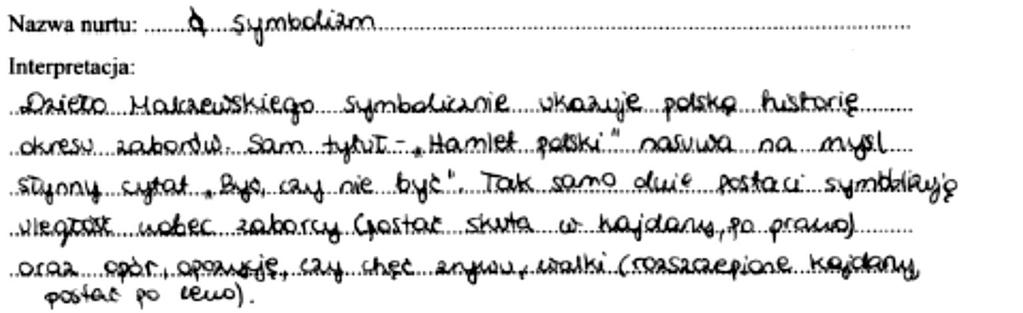 Nazwa nurtu: symbolizm
Interpretacja:
Dzieło Malczewskiego symbolicznie ukazuje polską historię
okresu zaborów. Sam tytuł - „Hamlet polski" nasuwa na myśl
słynny cytat „Być, czy nie być". Tak samo dwie postaci symbolizują
uległość wobec zaborcy (postać skuta w kajdany, po prawo)
oraz opór, opozycję, czy chęć zrywu, walki (rozszczepione kajdany,
postać po lewo).